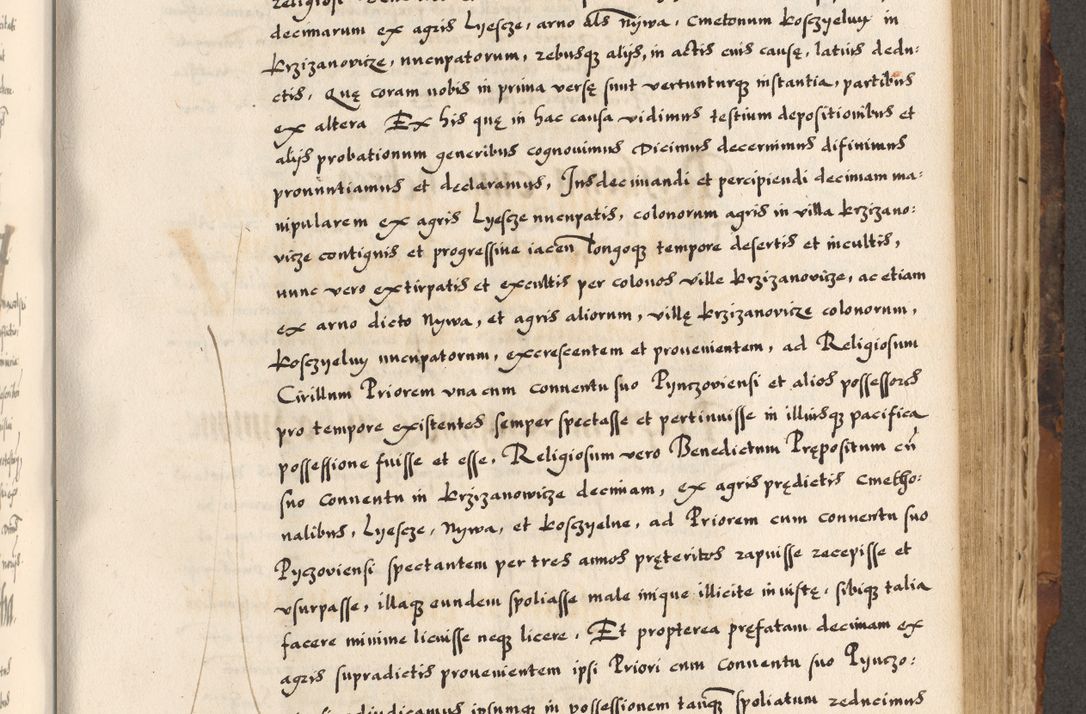 decimarum ex agris Lyescze, arno als Nywa, Cmetonum kosczyeluy in
krzizanovicze, nuncupatorum, rebusq3 alijs, in actis cuis causę, latius dedu:
ctis, Quę coram nobis in prima versę sunt vertunturq3 instantia, partibus
ex altera Ex his quę in hac causa vidimus testium depositionibus et
alijs probationum generibus cognouimus Dicimus decernimus difinimus
pronuntiamus et declaramus, Jus decimandi et percipiendi decimam ma:
nipularem ex agris Lyescze nuncupatis, colonorum agris in villa krzizano:
vicze contiguis et progressiue iacen longoq3 tempore desertis et incultis,
nunc vero extirpatis et excultis per colonos ville krzizanovicze, ac etiam
ex arno dicto Nywa, et agris aliorum, villę krzizanovicze colonorum,
kosczyeluy nuncupatorum, excrescentem et prouenientem, ad Religiosum
Cirillum Priorem vna cum conuentu suo Pynczoviensi et alios possessores
pro tempore existentes semper spectasse et pertinuisse in illiusq3 pacifica
possessione fuisse et esse, Religiosum vero Benedictum Prępositum cū
suo conuentu in krzizanowicze decimam, ex agris prędictis Cmetho:
nalibus, Lyescze, Nywa, et kosczyelne, ad Priorem cum conuentu suo
Pyczoviensi spectantem per tres annos pręteritos rapuisse recepisse et
vsurpasse, illaq3 eundem spoliasse male inique illicite iniustę, sibiq3 talia
facere minime licuisse neq3 licere, Et propterea pręfatam decimam ex
agris supradictis prouenientem ipsi Priori cum conuentu suo Pynczo:
adiudicamus ipsumq3 in possessionem tanq3 spoliatum reducimus